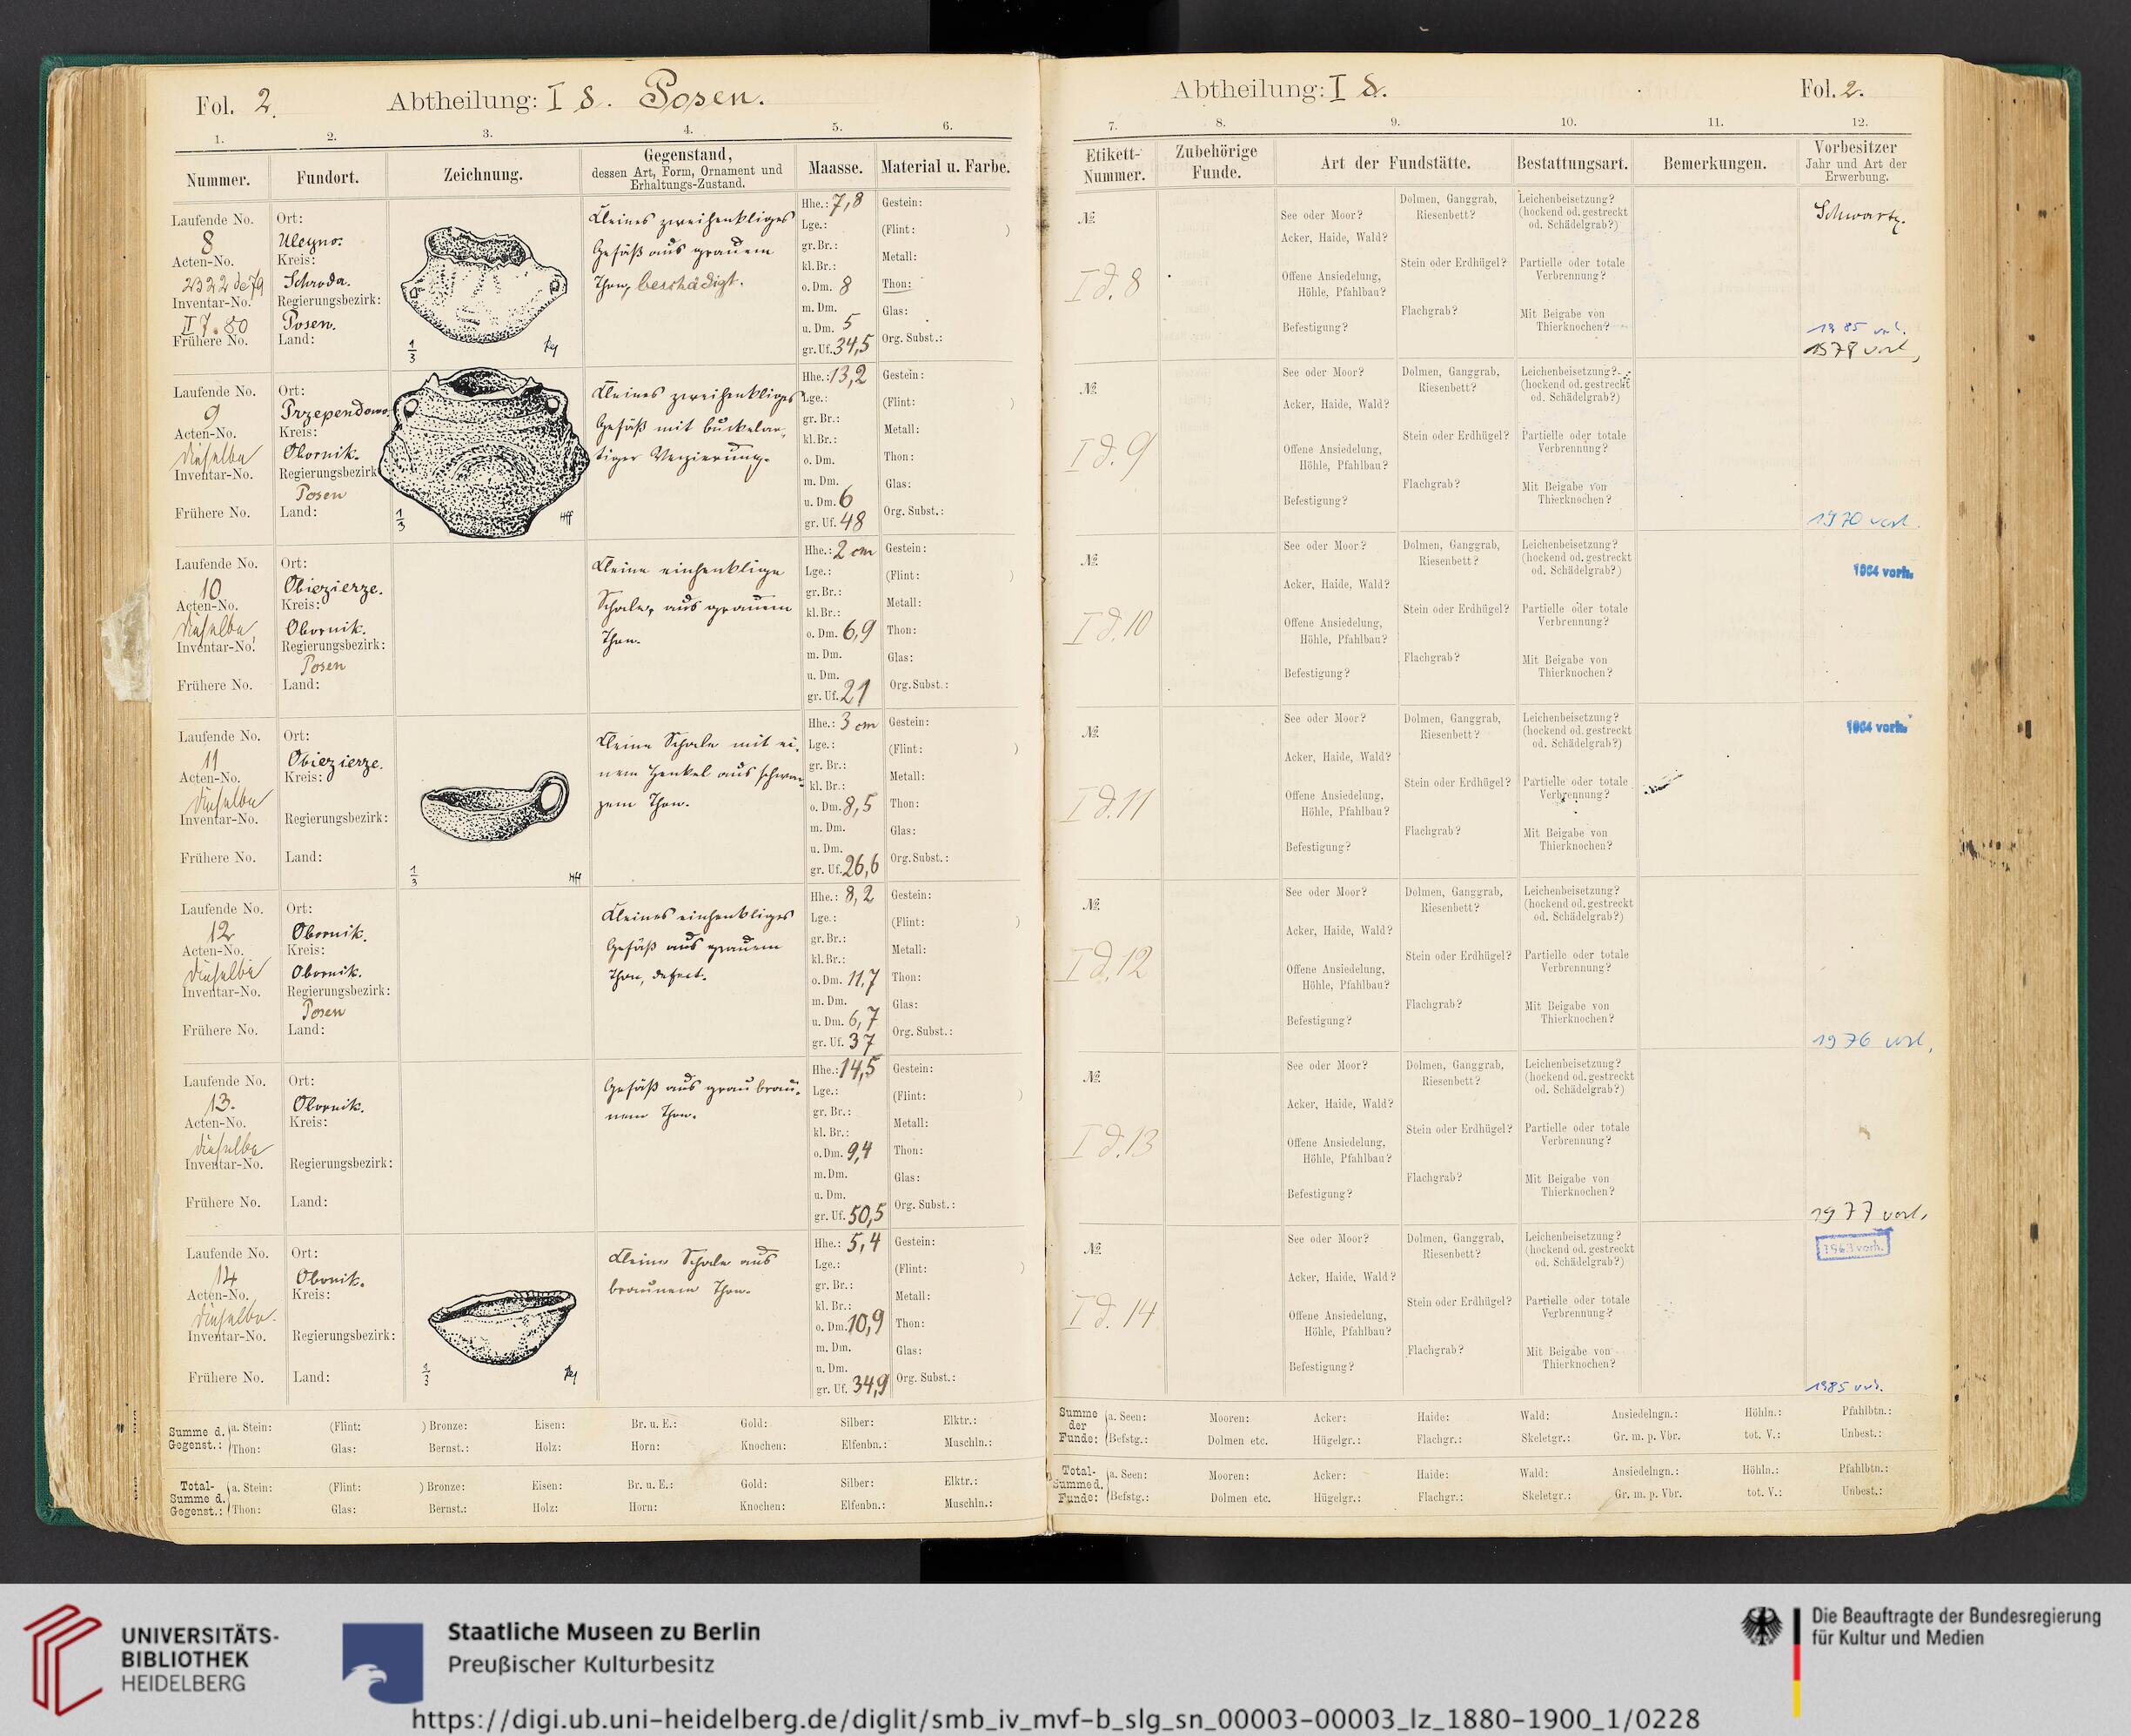 Fol. 2.
Abtheilung: I d. Posen.
1. 2. 3. 4. 5. 6.
Nummer. Fundort. Zeichnung. Gegenstand, dessen Art, Form, Ornament und Erhaltungs-Zustand. Maasse. Material u. Farbe.
Laufende No. 8
Acten-No. 2322 de 79
Inventar-No. II 7. 80
Frühere No.
Ort: Uleyno.
Kreis: Schroda.
Regierungsbezirk: Posen.
Land:
1/3
Kleines zweihenkliges
Gefäß aus grauem
Thon, beschädigt.
Hhe.: 7,8
Lge.:
gr. Br.:
kl. Br.:
o. Dm. 8
m. Dm.
u. Dm. 5
gr. Uf. 34,5
Gestein:
(Flint: )
Metall:
Thon:
Glas:
Org. Subst.:
Laufende No. 9
Acten-No. dieselbe
Inventar-No.
Frühere No.
Ort: Przependowo.
Kreis: Obornik.
Regierungsbezirk: Posen
Land:
1/3
Hff
Kleines zweihenkliges
Gefäß mit buckelar-
tiger Verzierung.
Hhe.: 13,2
Lge.:
gr. Br.:
kl. Br.:
o. Dm.
m. Dm.
u. Dm. 6
gr. Uf. 48
Gestein:
(Flint: )
Metall:
Thon:
Glas:
Org. Subst.:
Laufende No. 10
Acten-No. dieselbe.
Inventar-No.
Frühere No.
Ort: Obiezierze.
Kreis: Obornik.
Regierungsbezirk: Posen
Land:
Kleine einhenklige
Schale, aus grauem
Thon.
Hhe.: 2 cm
Lge.:
gr. Br.:
kl. Br.:
o. Dm. 6,9
m. Dm.
u. Dm.
gr. Uf. 21
Gestein:
(Flint: )
Metall:
Thon:
Glas:
Org. Subst.:
Laufende No. 11
Acten-No. dieselbe
Inventar-No.
Frühere No.
Ort: Obiezierze.
Kreis:
Regierungsbezirk:
Land:
1/3
Hff
Kleine Schale mit ei-
nem Henkel aus schwar-
zem Thon.
Hhe.: 3 cm
Lge.:
gr. Br.:
kl. Br.:
o. Dm. 8,5
m. Dm.
u. Dm.
gr. Uf. 26,6
Gestein:
(Flint: )
Metall:
Thon:
Glas:
Org. Subst.:
Laufende No. 12
Acten-No. dieselbe
Inventar-No.
Frühere No.
Ort: Obornik.
Kreis: Obornik.
Regierungsbezirk: Posen
Land:
Kleines einhenkliges
Gefäß aus grauem
Thon, defect.
Hhe.: 8,2
Lge.:
gr. Br.:
kl. Br.:
o. Dm. 11,7
m. Dm.
u. Dm. 6,7
gr. Uf. 37
Gestein:
(Flint: )
Metall:
Thon:
Glas:
Org. Subst.:
Laufende No. 13.
Acten-No. dieselbe
Inventar-No.
Frühere No.
Ort: Obornik.
Kreis:
Regierungsbezirk:
Land:
Gefäß aus graubrau-
nem Thon.
Hhe.: 14,5
Lge.:
gr. Br.:
kl. Br.:
o. Dm. 9,4
m. Dm.
u. Dm.
gr. Uf. 50,5
Gestein:
(Flint: )
Metall:
Thon:
Glas:
Org. Subst.:
Laufende No. 14
Acten-No. dieselbe.
Inventar-No.
Frühere No.
Ort: Obonik.
Kreis:
Regierungsbezirk:
Land:
1/3
Kleine Schale aus
braunem Thon.
Hhe.: 5,4
Lge.:
gr. Br.:
kl. Br.:
o. Dm. 10,9
m. Dm.
u. Dm.
gr. Uf. 34,9
Gestein:
(Flint: )
Metall:
Thon:
Glas:
Org. Subst.:
Summe d. Gegenst.: a. Stein: (Flint: ) Bronze: Eisen: Br. u. E.: Gold: Silber: Elktr.:
Thon: Glas: Bernst.: Holz: Horn: Knochen: Elfenbn.: Muschln.:
Total-Summe d. Gegenst.: a. Stein: (Flint: ) Bronze: Eisen: Br. u. E.: Gold: Silber: Elktr.:
Thon: Glas: Bernst.: Holz: Horn: Knochen: Elfenbn.: Muschln.:
Abtheilung: I d.
Fol. 2.
7. 8. 9. 10. 11. 12.
Etikett-Nummer. Zubehörige Funde. Art der Fundstätte. Bestattungsart. Bemerkungen. Vorbesitzer Jahr und Art der Erwerbung.
№ I d. 8
See oder Moor?
Acker, Haide, Wald?
Offene Ansiedelung, Höhle, Pfahlbau?
Befestigung?
Dolmen, Ganggrab, Riesenbett?
Stein oder Erdhügel?
Flachgrab?
Leichenbeisetzung? (hockend od. gestreckt od. Schädelgrab?)
Partielle oder totale Verbrennung?
Mit Beigabe von Thierknochen?
Schwartz.
1985 vorh.
1978 vorh.
№ I d. 9
See oder Moor?
Acker, Haide, Wald?
Offene Ansiedelung, Höhle, Pfahlbau?
Befestigung?
Dolmen, Ganggrab, Riesenbett?
Stein oder Erdhügel?
Flachgrab?
Leichenbeisetzung? (hockend od. gestreckt od. Schädelgrab?)
Partielle oder totale Verbrennung?
Mit Beigabe von Thierknochen?
1970 vorh.
№ I d. 10
See oder Moor?
Acker, Haide, Wald?
Offene Ansiedelung, Höhle, Pfahlbau?
Befestigung?
Dolmen, Ganggrab, Riesenbett?
Stein oder Erdhügel?
Flachgrab?
Leichenbeisetzung? (hockend od. gestreckt od. Schädelgrab?)
Partielle oder totale Verbrennung?
Mit Beigabe von Thierknochen?
1964 vorh.
№ I d. 11
See oder Moor?
Acker, Haide, Wald?
Offene Ansiedelung, Höhle, Pfahlbau?
Befestigung?
Dolmen, Ganggrab, Riesenbett?
Stein oder Erdhügel?
Flachgrab?
Leichenbeisetzung? (hockend od. gestreckt od. Schädelgrab?)
Partielle oder totale Verbrennung?
Mit Beigabe von Thierknochen?
1964 vorh.
№ I d. 12
See oder Moor?
Acker, Haide, Wald?
Offene Ansiedelung, Höhle, Pfahlbau?
Befestigung?
Dolmen, Ganggrab, Riesenbett?
Stein oder Erdhügel?
Flachgrab?
Leichenbeisetzung? (hockend od. gestreckt od. Schädelgrab?)
Partielle oder totale Verbrennung?
Mit Beigabe von Thierknochen?
1976 vorh.
№ I d. 13
See oder Moor?
Acker, Haide, Wald?
Offene Ansiedelung, Höhle, Pfahlbau?
Befestigung?
Dolmen, Ganggrab, Riesenbett?
Stein oder Erdhügel?
Flachgrab?
Leichenbeisetzung? (hockend od. gestreckt od. Schädelgrab?)
Partielle oder totale Verbrennung?
Mit Beigabe von Thierknochen?
1977 vorh.
№ I d. 14
See oder Moor?
Acker, Haide, Wald?
Offene Ansiedelung, Höhle, Pfahlbau?
Befestigung?
Dolmen, Ganggrab, Riesenbett?
Stein oder Erdhügel?
Flachgrab?
Leichenbeisetzung? (hockend od. gestreckt od. Schädelgrab?)
Partielle oder totale Verbrennung?
Mit Beigabe von Thierknochen?
1963 vorh.
1985 vorh.
Summe der Funde: a. Seen: Mooren: Acker: Haide: Wald: Ansiedelngn.: Höhln.: Pfahlbtn.:
Befstg.: Dolmen etc. Hügelgr.: Flachgr.: Skeletgr.: Gr. m. p. Vbr. tot. V.: Unbest.:
Total-Summe d. Funde: a. Seen: Mooren: Acker: Haide: Wald: Ansiedelngn.: Höhln.: Pfahlbtn.:
Befstg.: Dolmen etc. Hügelgr.: Flachgr.: Skeletgr.: Gr. m. p. Vbr. tot. V.: Unbest.:
UNIVERSITÄTS-
BIBLIOTHEK
HEIDELBERG
Staatliche Museen zu Berlin
Preußischer Kulturbesitz
Die Beauftragte der Bundesregierung
für Kultur und Medien
https://digi.ub.uni-heidelberg.de/diglit/smb_iv_mvf-b_slg_sn_00003-00003_lz_1880-1900_1/0228